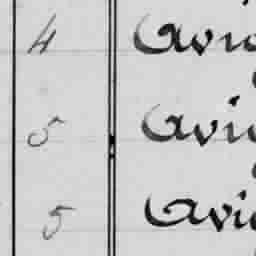 4 Avi
5 Avi
5 Avi